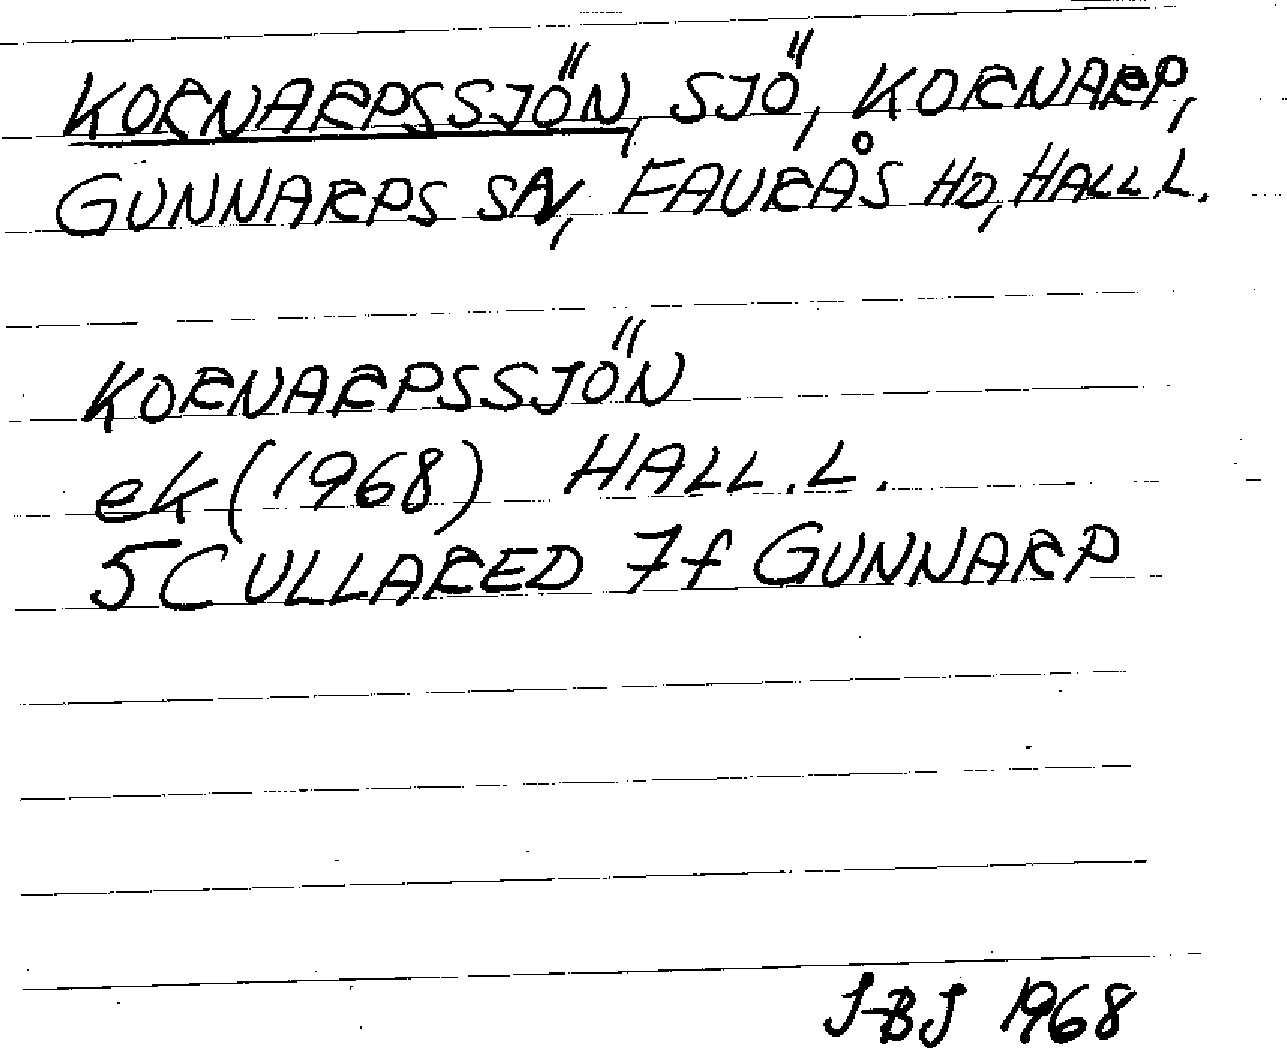 KORNARPSSJÖN, SJÖ, KORNARP,
GUNNARPS SN, FAURÅS HD, HALL.L.
KORNARPSSJÖN
ek (1968) HALL.L.
5C ULLARED 7f GUNNARP
J-BJ 1968